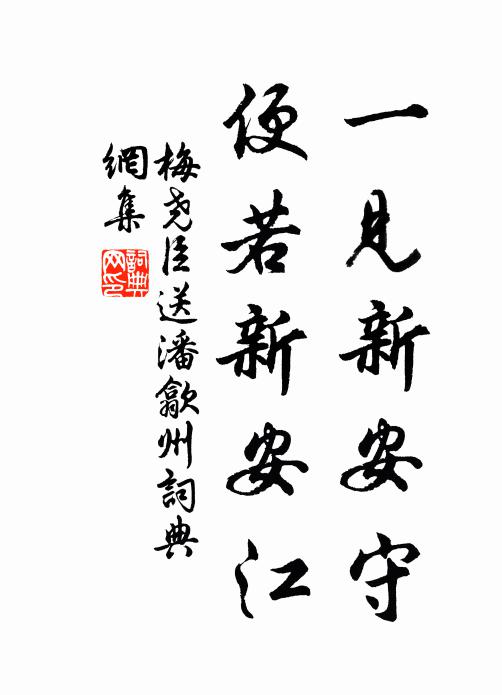 一見新安守
便若新安江
梅堯臣送潘歙州詞典
網集
詞典网印